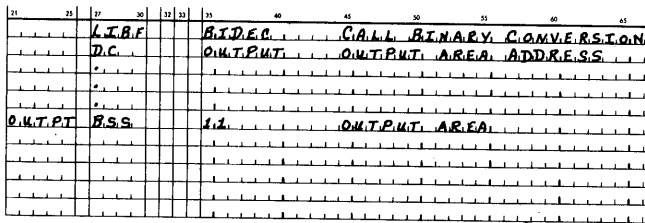 21 25 27 30 32 33 35 40 45 50 55 60 65
LIBF BIDEC CALL BINARY CONVERSION
DC OUTPUT OUTPUT AREA ADDRESS
.
.
.
OUTPT BSS 11 OUTPUT AREA